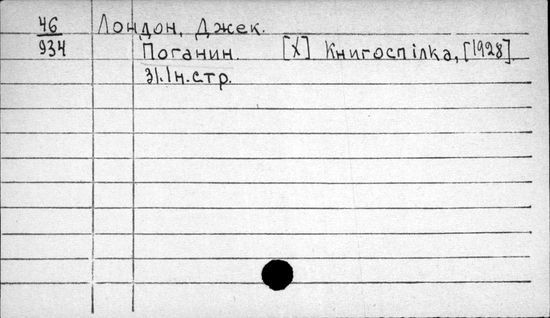 46
934
Лондон, Джек.
Поганин. [Х] Книгоспілка, [1928].
31.1н.стр.